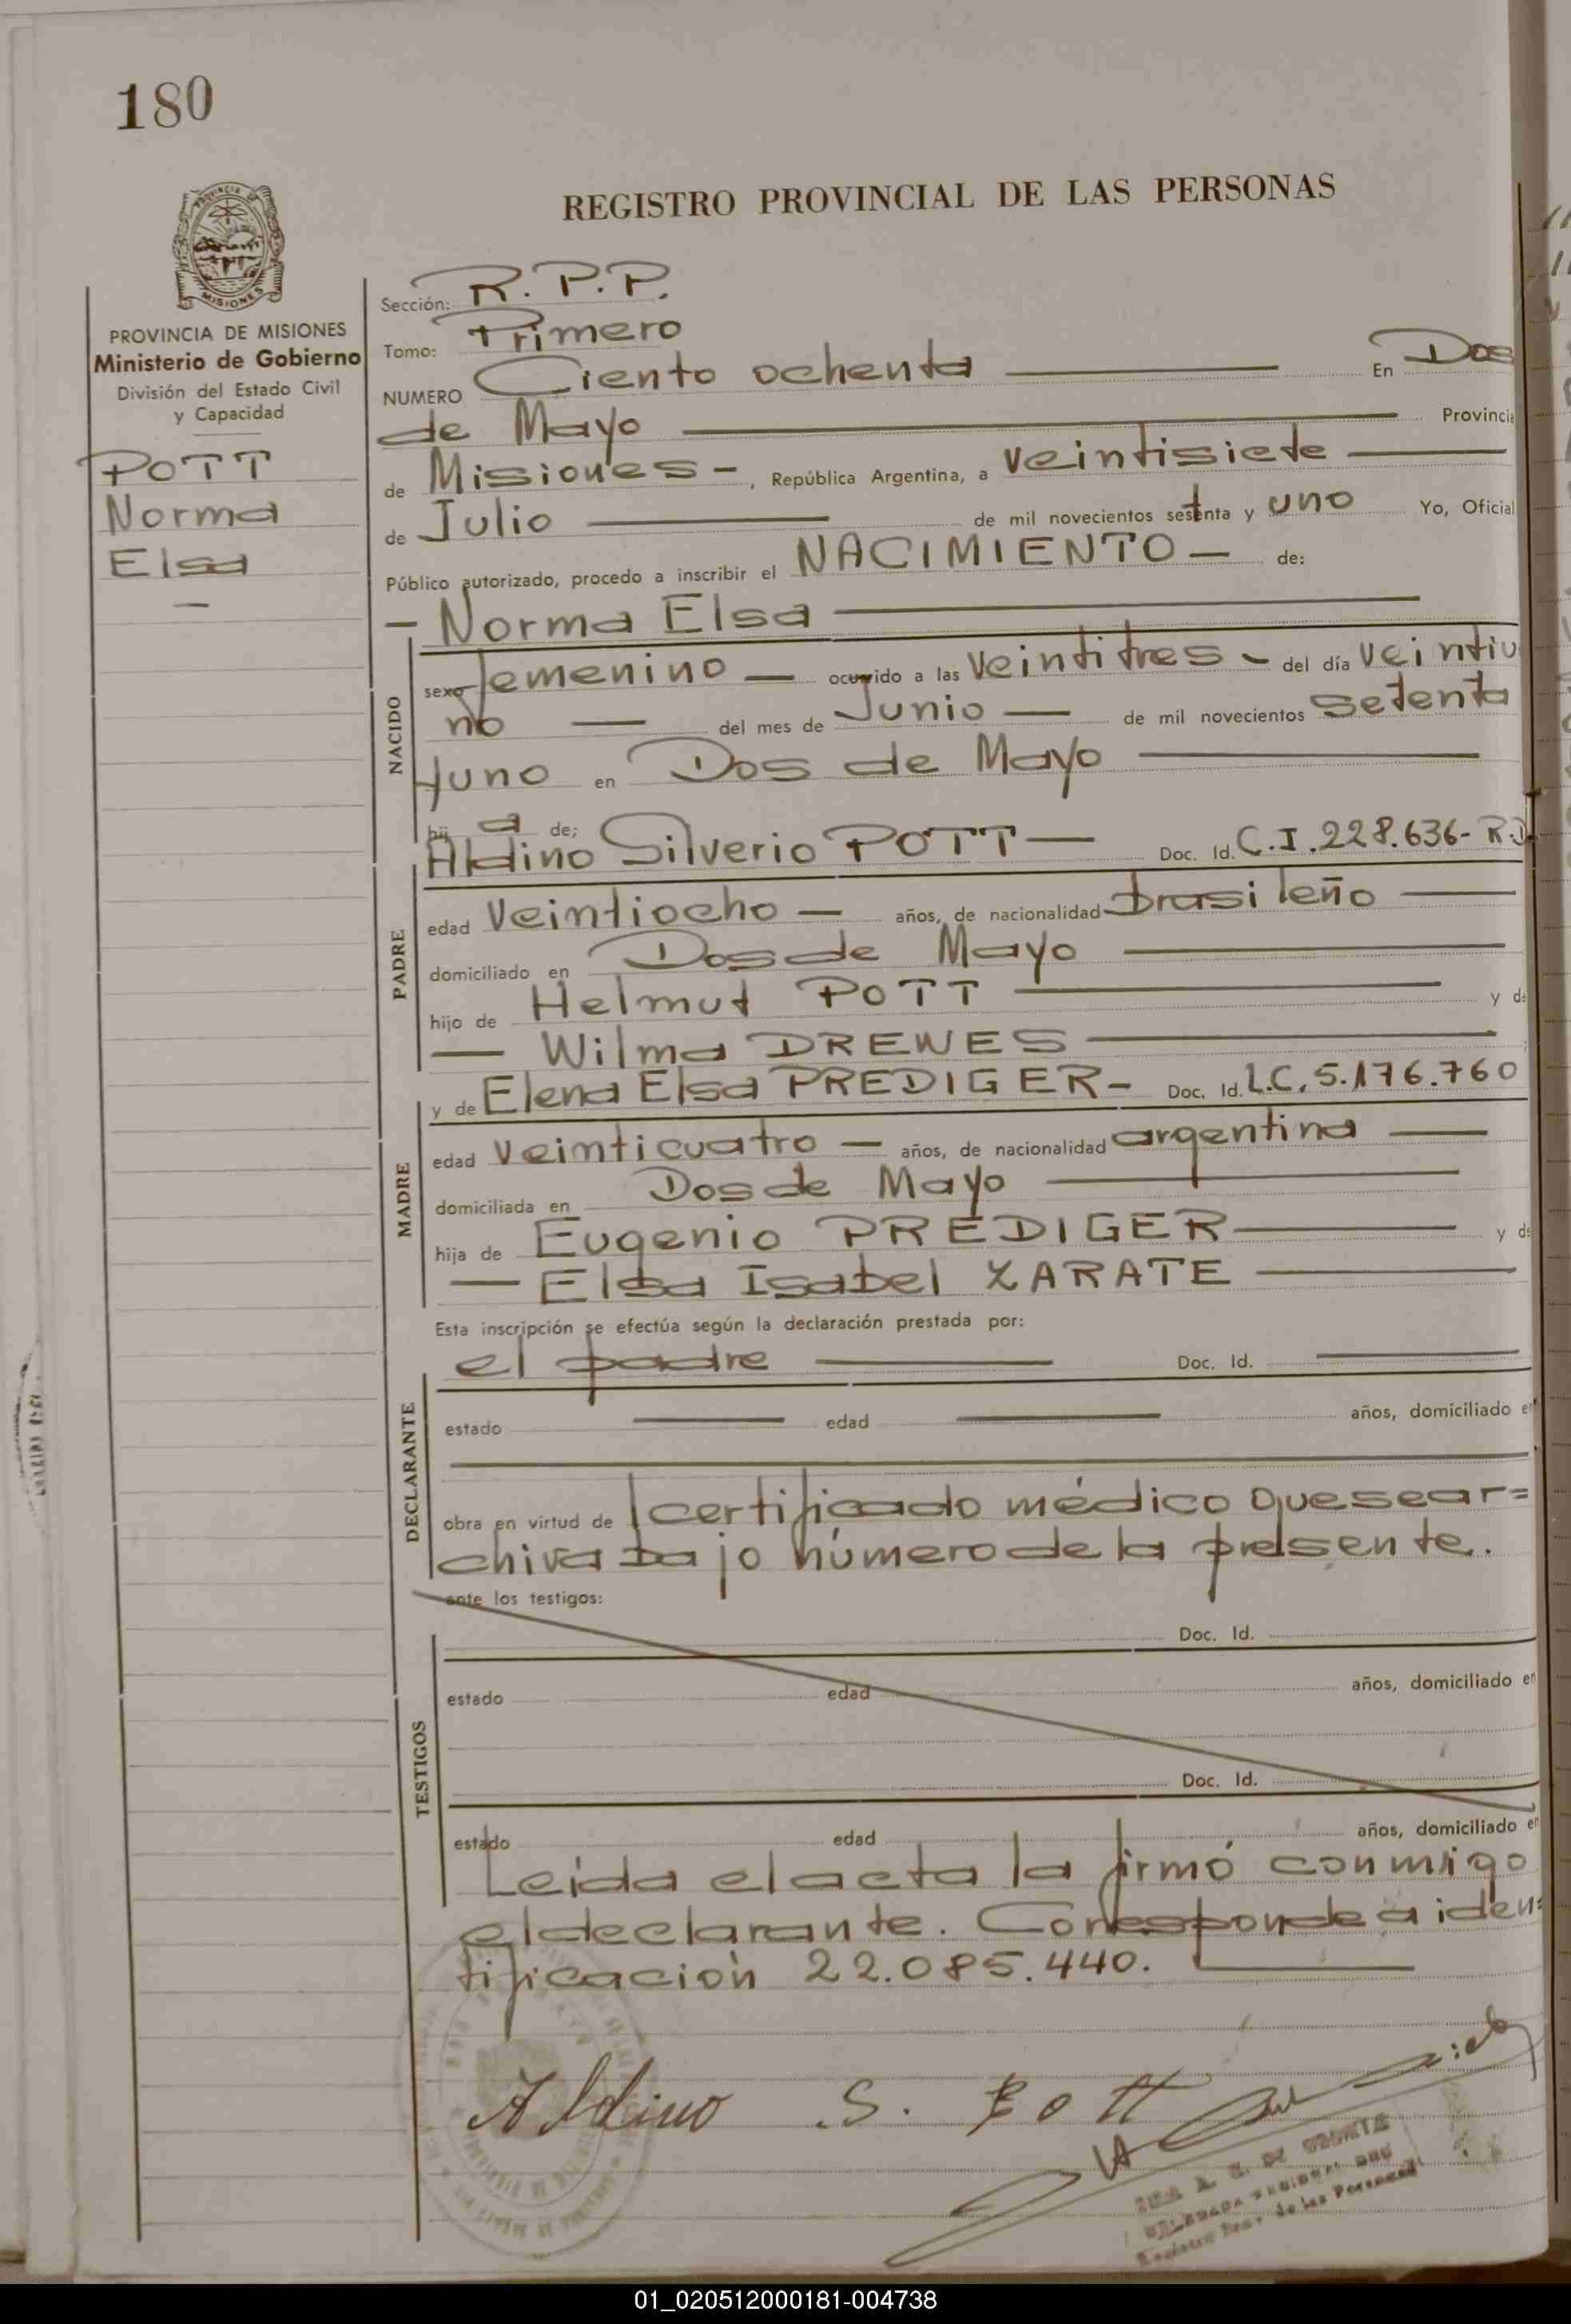 180
PROVINCIA DE
MISIONES
REGISTRO PROVINCIAL DE LAS PERSONAS
PROVINCIA DE MISIONES
Ministerio de Gobierno
División del Estado Civil
y Capacidad
POTT
Norma
Elsa
Sección: R.P.P.
Tomo: Primero
NUMERO Ciento ochenta En Dos
de Mayo Provincia
de Misiones - , República Argentina, a veintisiete
de Julio de mil novecientos setenta y uno Yo, Oficial
Público autorizado, procedo a inscribir el NACIMIENTO - de:
- Norma Elsa
NACIDO
sexo femenino - ocurrido a las veintitres - del día veintiu
no del mes de Junio - de mil novecientos setenta
y uno en Dos de Mayo
hij a de;
Aldino Silverio POTT - Doc. Id. C.I.228.636-
PADRE
edad veintiocho - años, de nacionalidad brasileño
domiciliado en Dos de Mayo
hijo de Helmut POTT y de
- Wilma DREWES
y de Elena Elsa PREDIGER - Doc. Id. L.C. 5.176.760
MADRE
edad veinticuatro - años, de nacionalidad argentina
domiciliada en Dos de Mayo
hija de Eugenio PREDIGER y de
- Elsa Isabel ZARATE
Esta inscripción se efectúa según la declaración prestada por:
el padre Doc. Id.
DECLARANTE
estado edad años, domiciliado en
obra en virtud de certificado médico que se ar=
chiva bajo número de la presente.
ante los testigos:
Doc. Id.
TESTIGOS
estado edad años, domiciliado en
Doc. Id.
estado edad años, domiciliado en
Leída el acta la firmó conmigo
el declarante. Corresponde a iden=
tificación 22.085.440.
Aldino S. Pott
de las Personas
01_020512000181-004738